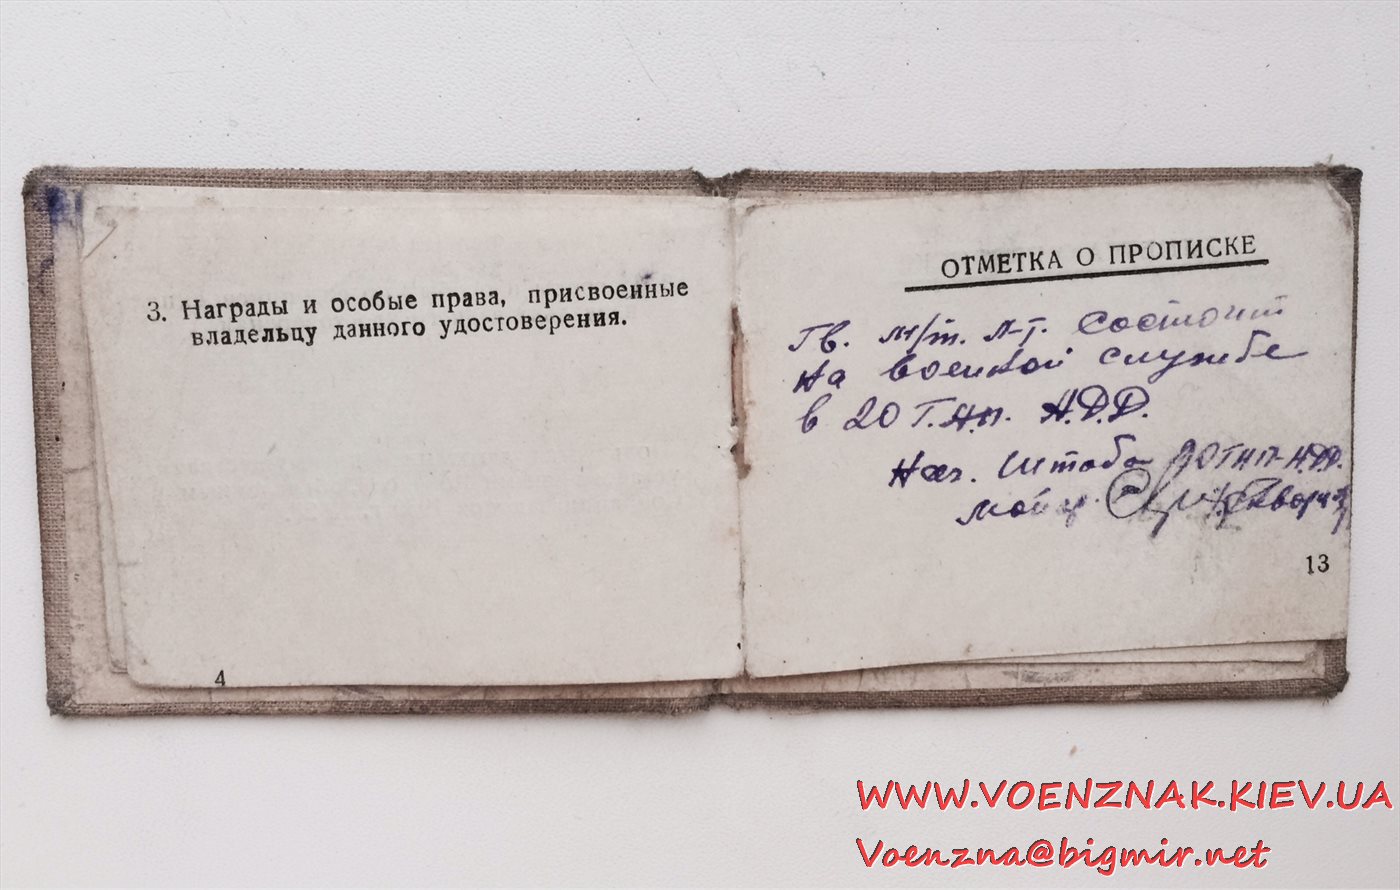 3. Награды и особые права, присвоенные
владельцу данного удостоверения.
4
ОТМЕТКА О ПРОПИСКЕ
Гв. м/т. л-т. состоит
на военной службе
в 20 Г.А.П. А.Д.Д.
Нач. штаба
майор
13
WWW.VOENZNAK.KIEV.UA
Voenzna@bigmir.net